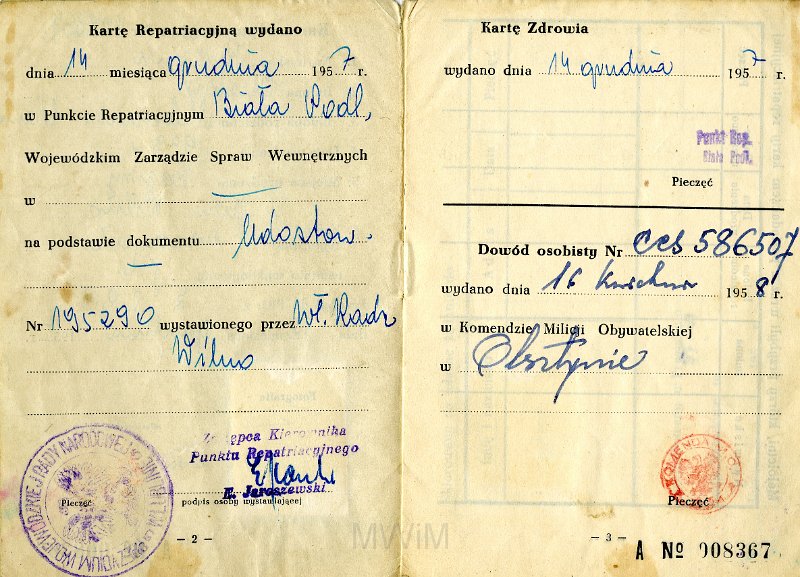 Kartę Repatriacyjną wydano
dnia 14 miesiąca grudnia 1957 r.
w Punkcie Repatriacyjnym Biała Podl,
Wojewódzkim Zarządzie Spraw Wewnętrznych
w
na podstawie dokumentu Udostow.
Nr 195290 wystawionego przez Wł. Radz
Wilno
Zastępca Kierownika
Punktu Repatriacyjnego
E. Jaroszewski
Pieczęć
podpis osoby wystawiającej
- 2 -
Kartę Zdrowia
wydano dnia 14 grudnia 1957 r.
Punkt Rep.
Biała Podl.
Pieczęć
Dowód osobisty Nr 586507
wydano dnia 16 kwietnia 1958 r.
w Komendzie Milicji Obywatelskiej
w Olsztynie
Pieczęć
- 3 -
A № 008367
MWiM